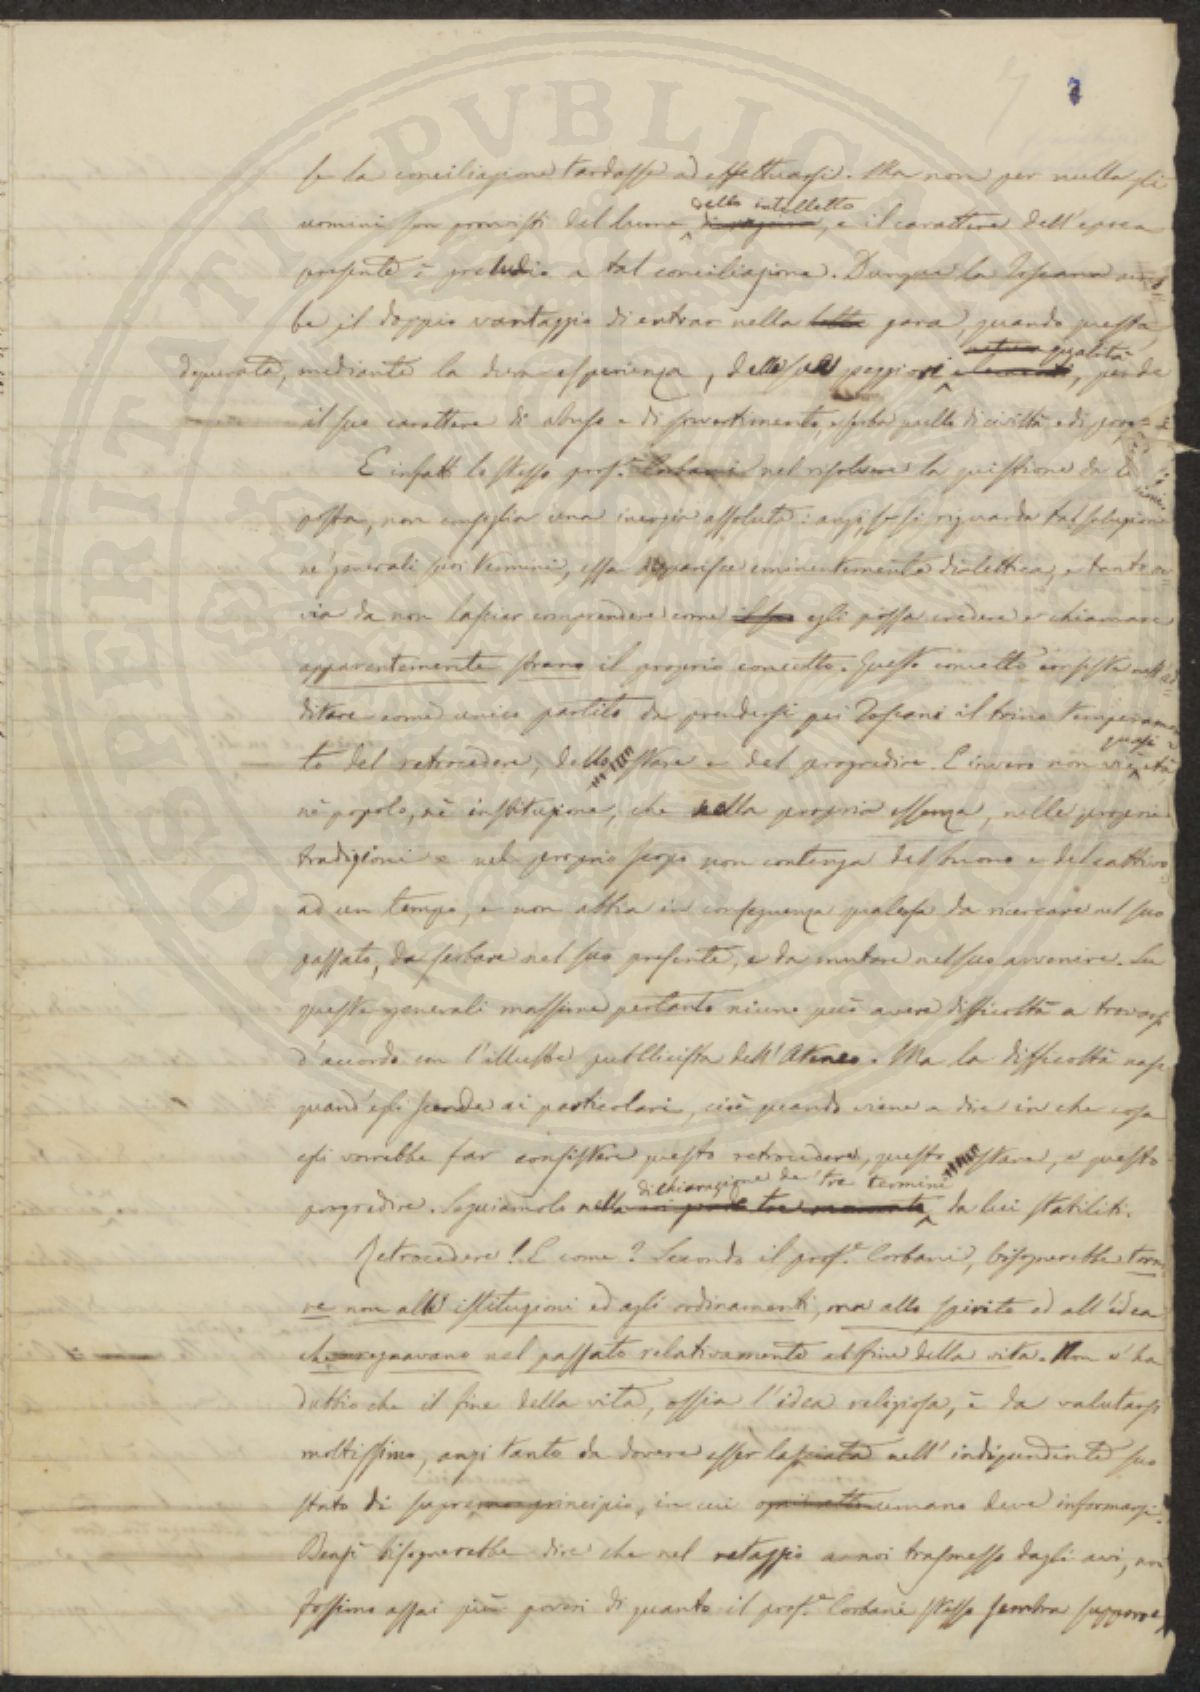 7
se la conciliazione tardasse ad effettuarsi. Ma non per nulla gli
dello intelletto
uomini son provvisti del lume di ragione, e il carattere dell'epoca
presente è preludio a tal conciliazione. Dunque la Toscana av=
be il doppio vantaggio di entrar nella lotta gara, quando questa,
qualità
depurata, mediante la dura esperienza, delle sue peggiori, perde
il suo carattere di abuso e di sovvertimento, e serba quello di civiltà e di
E infatti lo stesso prof.e Corbani nel risolvere la quistione da
posta, non consiglia una inerzia assoluta: anzi, se si riguarda tal soluzione
ne' generali suoi termini, essa apparisce eminentemente dialettica, e tanto ov=
via da non lasciar comprendere come egli possa credere e chiamare
apparentemente strano il proprio concetto. Questo concetto consiste nell'ad=
ditare come unico partito da prendersi pei Toscani il trino temperamen=
quasi
to del retrocedere, dello stare e del progredire. E invero non v'è età,
nè popolo, nè instituzione, che nella propria essenza, nelle proprie
tradizioni e nel proprio scopo non contenga del buono e del cattivo
ad un tempo, e non abbia in conseguenza qualcosa da ricercare nel suo
passato, da serbare nel suo presente, e da mutare nel suo avvenire. Su
queste generali massime pertanto niuno può avere difficoltà a trovarsi
d'accordo con l'illustre pubblicista dell'Ateneo. Ma la difficoltà nasce
quand'egli scende ai particolari, cioè quando viene a dire in che cosa
egli vorrebbe far consistere questo retrocedere, questo stare, e questo
dichiarazione de' tre termini
progredire. Seguiamolo nella da lui stabiliti.
Retrocedere! E come? Secondo il prof.e Corbani, bisognerebbe torna=
re non alle istituzioni ed agli ordinamenti, ma allo spirito ed all'idea
che regnavano nel passato relativamente al fine della vita. Non v'ha
dubbio che il fine della vita, ossia l'idea religiosa, è da valutarsi
moltissimo, anzi tanto da dovere esser lasciata nell'indipendente suo
stato di supremo principio, in cui ogni atto umano deve informarsi.
Bensì bisognerebbe dire che nel retaggio a noi trasmesso dagli avi, noi
fossimo assai più poveri di quanto il prof.e Corbani stesso sembra supporre,